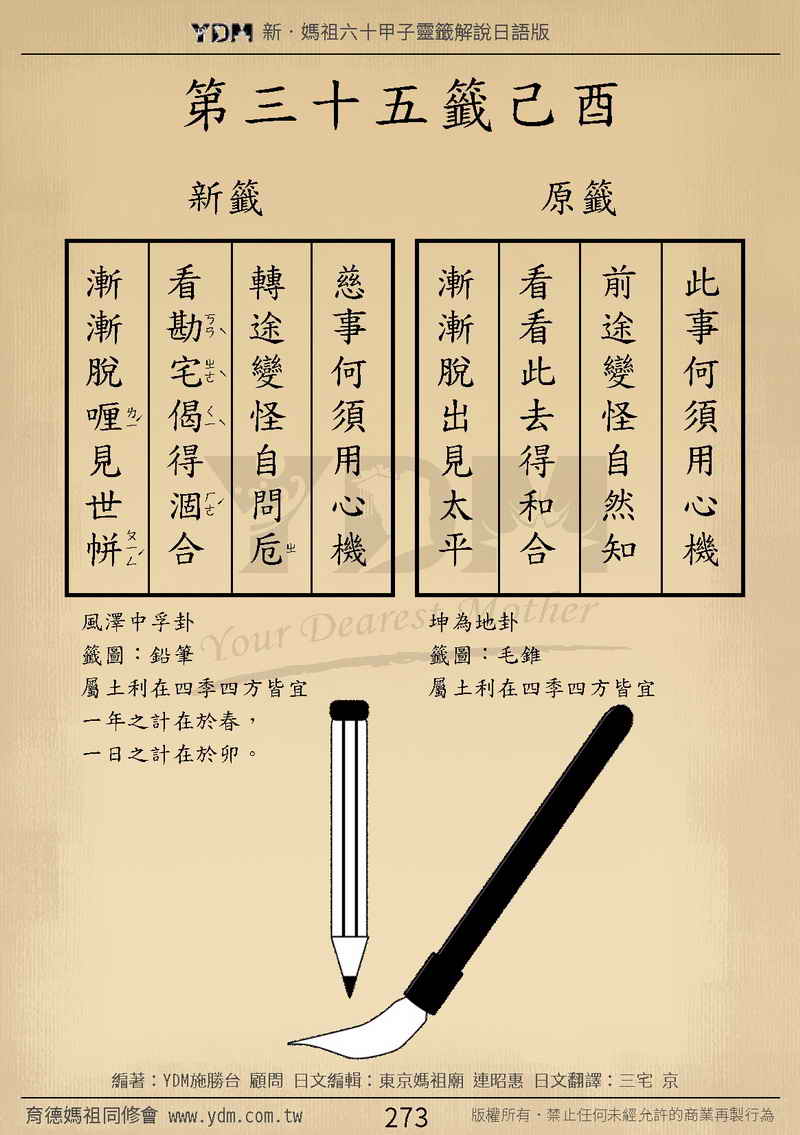 YDM 新．媽祖六十甲子靈籤解說日語版
第三十五籤己酉
原籤
此事何須用心機
前途變怪自然知
看看此去得和合
漸漸脫出見太平
坤為地卦
籤圖：毛錐
屬土利在四季四方皆宜
新籤
慈事何須用心機
轉途變怪自問卮ㄓ
看勘ㄎㄢˋ宅ㄓㄜˋ偈ㄑㄧˋ得涸ㄏㄜˊ合
漸漸脫喱ㄌㄧˊ見世帡ㄆㄧㄥˊ
風澤中孚卦
籤圖：鉛筆
屬土利在四季四方皆宜
一年之計在於春，
一日之計在於卯。
YDM
Your Dearest Mother
編著：YDM施勝台 顧問 日文編輯：東京媽祖廟 連昭惠 日文翻譯：三宅 京
育德媽祖同修會 www.ydm.com.tw
273
版權所有．禁止任何未經允許的商業再製行為